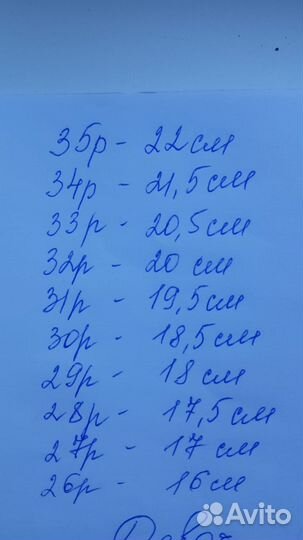 35р - 22 см
34р - 21,5 см
33р - 20,5 см
32р - 20 см
31р - 19,5 см
30р - 18,5 см
29р - 18 см
28р - 17,5 см
27р - 17 см
26р - 16 см
Avito